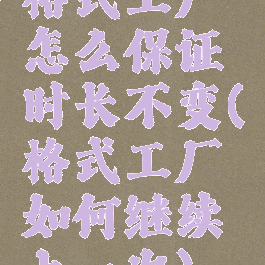 格式工厂
怎么保证
时长不变(
格式工厂
如何继续